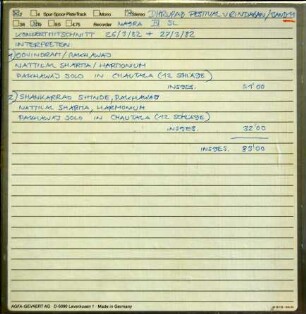 2 4 Spur·Spoor·Piste·Track Mono Stereo DHRUPAD FESTIVAL VRINDABAN/
19 38 NAGRA IV SL
KONZERTMITSCHNITT 26/3/82 + 27/3/82
INTERPRETEN
NATTILAL SHARMA / HARMONIUM
PAKHAWAJ SOLO IN CHAUTALA (12 SCHLÄGE)
INSGES. 51'00
2) SHANKARRAO SHINDE, PAKHAWAJ
NATTILAL SHARMA, HARMONIUM
PAKHAWAJ SOLO IN CHAUTALA (12 SCHLÄGE)
INSGES. 32'00
INSGES. 83'00
AGFA-GEVAERT AG D 5090 Leverkusen 1 Made in Germany